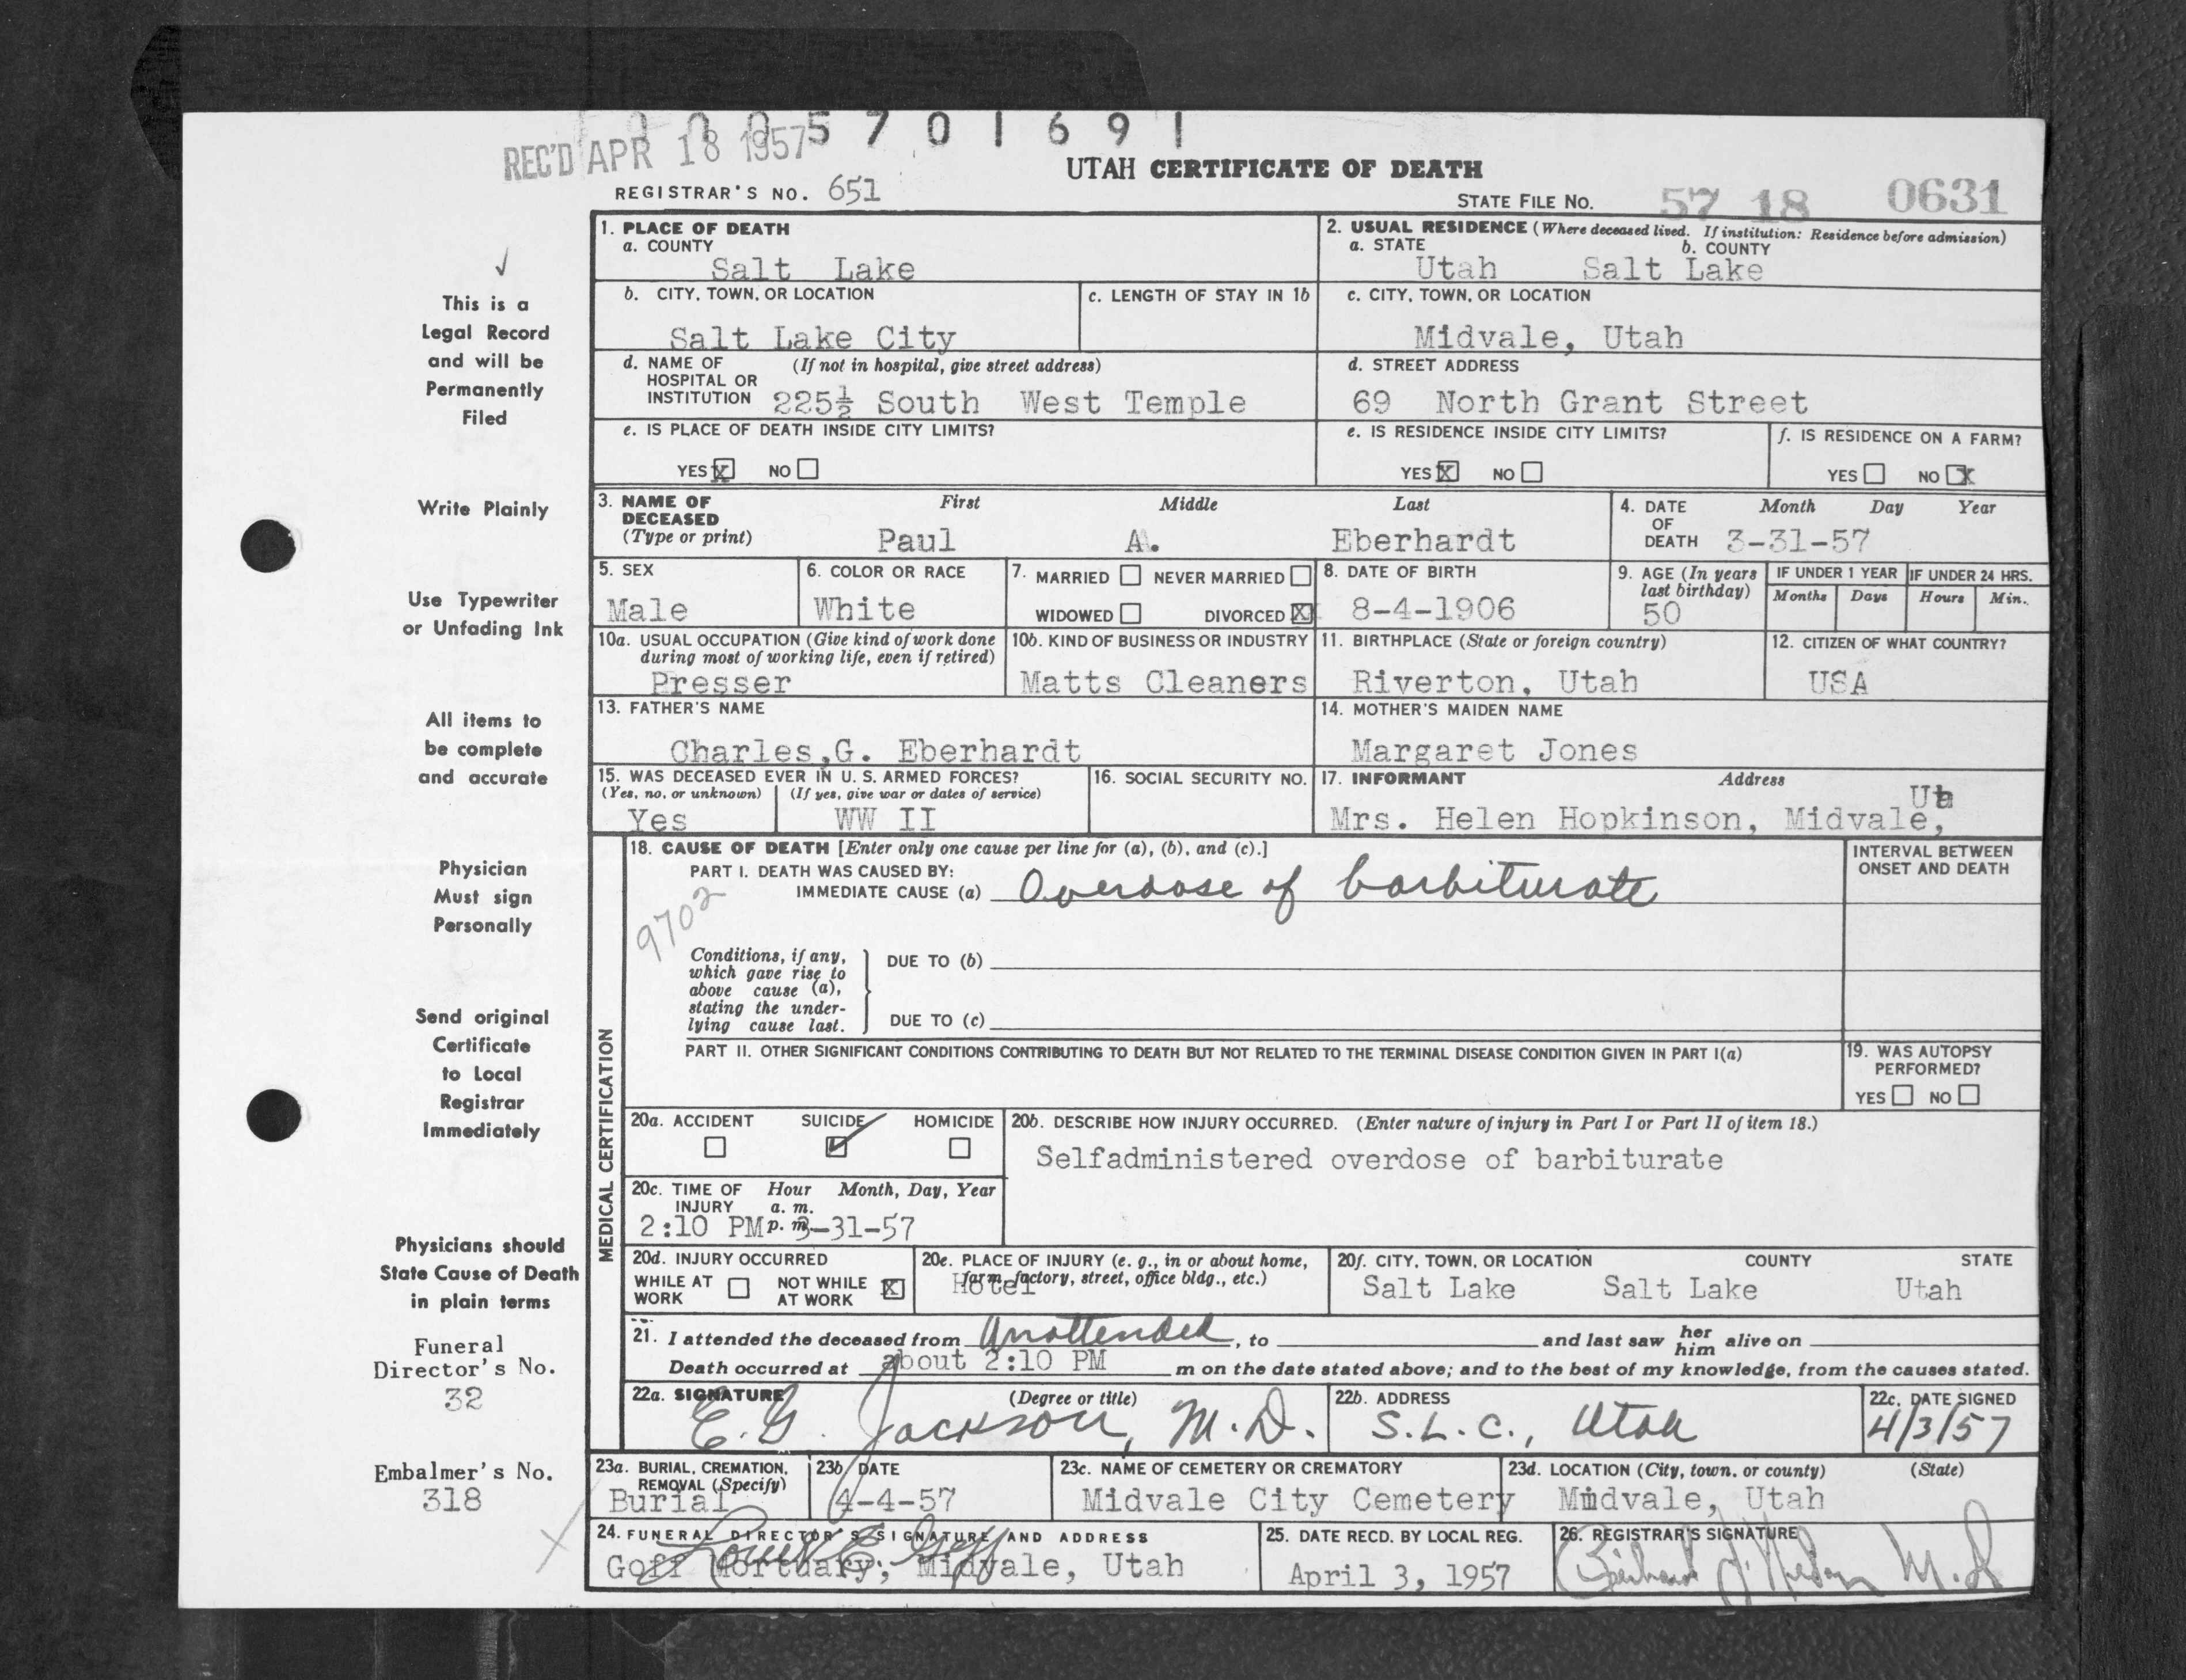 0005701691
REC'D APR 18 1957
UTAH CERTIFICATE OF DEATH
REGISTRAR'S NO. 651
STATE FILE NO. 57 18 0631
This is a
Legal Record
and will be
Permanently
Filed
Write Plainly
Use Typewriter
or Unfading Ink
All items to
be complete
and accurate
Physician
Must sign
Personally
Send original
Certificate
to Local
Registrar
Immediately
Physicians should
State Cause of Death
in plain terms
Funeral
Director's No.
32
Embalmer's No.
318
1. PLACE OF DEATH
a. COUNTY
Salt Lake
2. USUAL RESIDENCE (Where deceased lived. If institution: Residence before admission)
a. STATE b. COUNTY
Utah Salt Lake
b. CITY, TOWN, OR LOCATION
Salt Lake City
c. LENGTH OF STAY IN 1b
c. CITY, TOWN, OR LOCATION
Midvale, Utah
d. NAME OF (If not in hospital, give street address)
HOSPITAL OR
INSTITUTION 225½ South West Temple
d. STREET ADDRESS
69 North Grant Street
e. IS PLACE OF DEATH INSIDE CITY LIMITS?
YES X NO
e. IS RESIDENCE INSIDE CITY LIMITS?
YES X NO
f. IS RESIDENCE ON A FARM?
YES NO X
3. NAME OF First Middle Last
DECEASED
(Type or print) Paul A. Eberhardt
4. DATE Month Day Year
OF
DEATH 3-31-57
5. SEX
Male
6. COLOR OR RACE
White
7. MARRIED NEVER MARRIED
WIDOWED DIVORCED X
8. DATE OF BIRTH
8-4-1906
9. AGE (In years
last birthday)
50
IF UNDER 1 YEAR IF UNDER 24 HRS.
Months Days Hours Min.
10a. USUAL OCCUPATION (Give kind of work done
during most of working life, even if retired)
Presser
10b. KIND OF BUSINESS OR INDUSTRY
Matts Cleaners
11. BIRTHPLACE (State or foreign country)
Riverton, Utah
12. CITIZEN OF WHAT COUNTRY?
USA
13. FATHER'S NAME
Charles,G. Eberhardt
14. MOTHER'S MAIDEN NAME
Margaret Jones
15. WAS DECEASED EVER IN U. S. ARMED FORCES?
(Yes, no, or unknown) (If yes, give war or dates of service)
Yes WW II
16. SOCIAL SECURITY NO.
17. INFORMANT Address
Mrs. Helen Hopkinson, Midvale,
MEDICAL CERTIFICATION
18. CAUSE OF DEATH [Enter only one cause per line for (a), (b), and (c).]
PART I. DEATH WAS CAUSED BY:
IMMEDIATE CAUSE (a) Overdose of barbiturate
9702
INTERVAL BETWEEN
ONSET AND DEATH
Conditions, if any,
which gave rise to
above cause (a),
stating the under-
lying cause last.
DUE TO (b)
DUE TO (c)
PART II. OTHER SIGNIFICANT CONDITIONS CONTRIBUTING TO DEATH BUT NOT RELATED TO THE TERMINAL DISEASE CONDITION GIVEN IN PART I(a)
19. WAS AUTOPSY
PERFORMED?
YES NO
20a. ACCIDENT SUICIDE HOMICIDE
20b. DESCRIBE HOW INJURY OCCURRED. (Enter nature of injury in Part I or Part II of item 18.)
Selfadministered overdose of barbiturate
20c. TIME OF Hour Month, Day, Year
INJURY a. m.
2:10 PM p. m. 3-31-57
20d. INJURY OCCURRED
WHILE AT WORK NOT WHILE AT WORK X
20e. PLACE OF INJURY (e. g., in or about home,
farm, factory, street, office bldg., etc.)
Hotel
20f. CITY, TOWN, OR LOCATION COUNTY STATE
Salt Lake Salt Lake Utah
21. I attended the deceased from Unattended, to and last saw her him alive on
Death occurred at about 2:10 PM m on the date stated above; and to the best of my knowledge, from the causes stated.
22a. SIGNATURE (Degree or title)
E. G. Jackson, M.D.
22b. ADDRESS
S.L.C., Utah
22c. DATE SIGNED
4/3/57
23a. BURIAL, CREMATION,
REMOVAL (Specify)
Burial
23b. DATE
4-4-57
23c. NAME OF CEMETERY OR CREMATORY
Midvale City Cemetery
23d. LOCATION (City, town, or county) (State)
Midvale, Utah
24. FUNERAL DIRECTOR'S SIGNATURE AND ADDRESS
Goff Mortuary, Midvale, Utah
25. DATE RECD. BY LOCAL REG.
April 3, 1957
26. REGISTRAR'S SIGNATURE